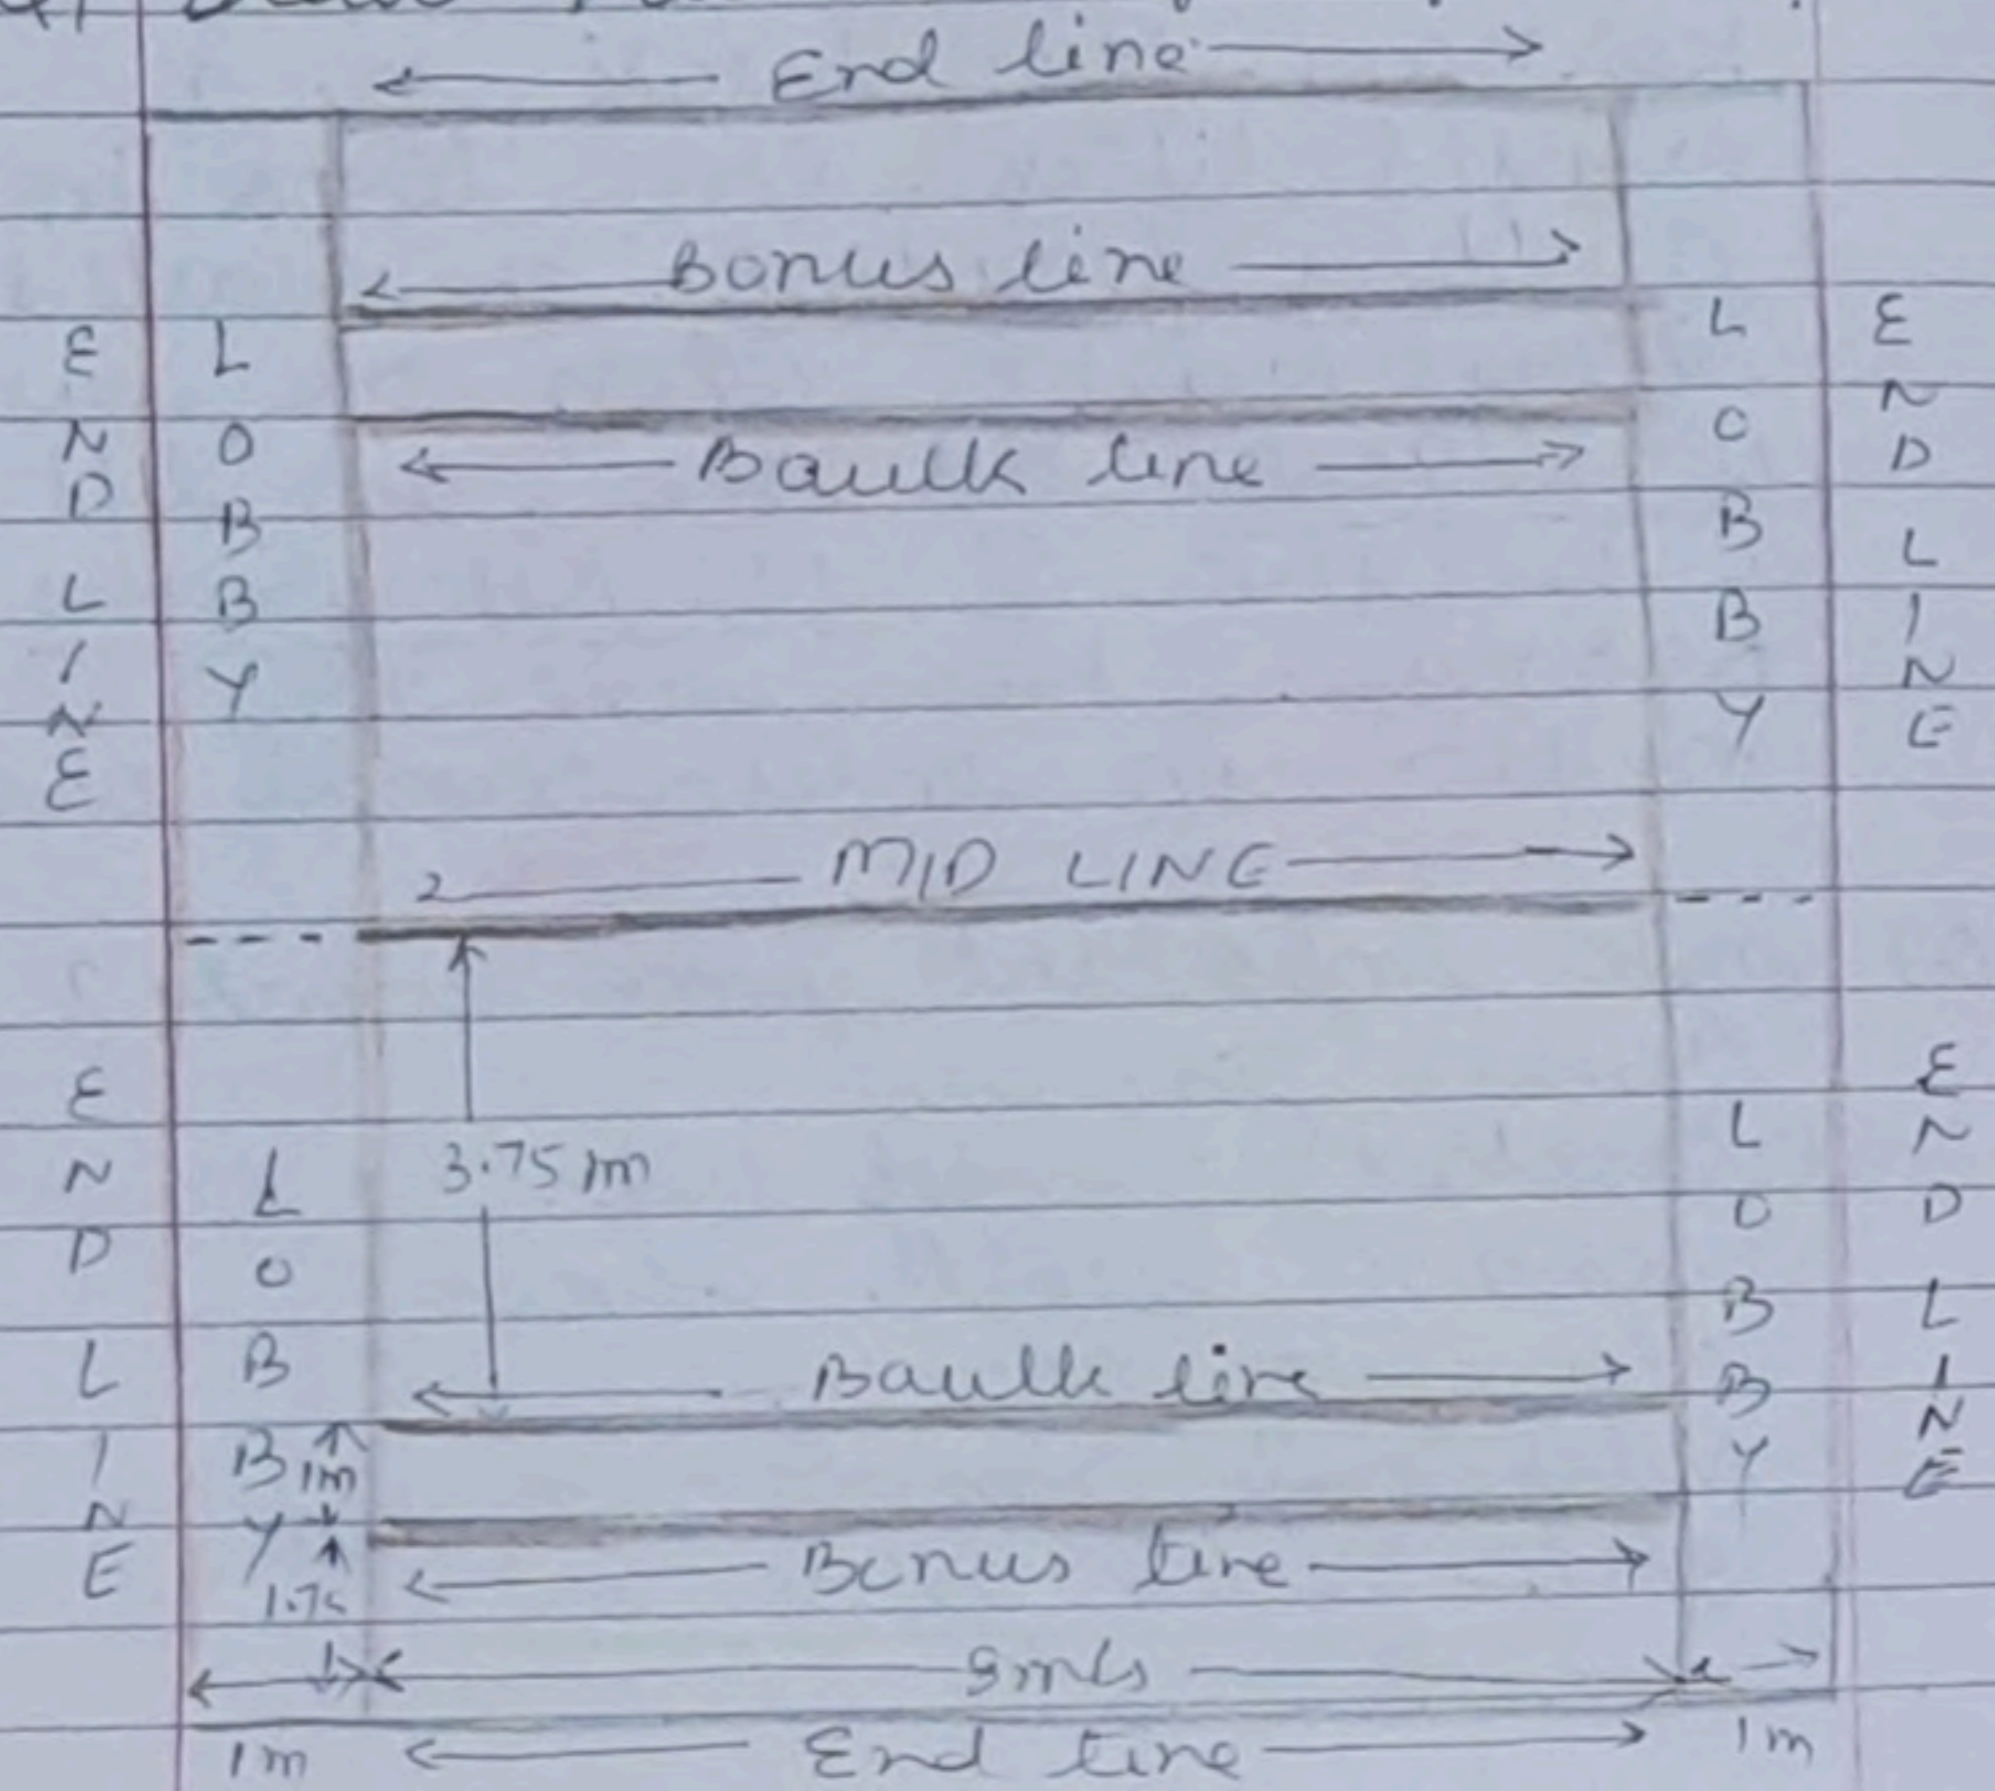 End line
Bonus line
END LINE
LOBBY
LOBBY
END LINE
Baulk line
MID LINE
3.75 m
END LINE
LOBBY
LOBBY
END LINE
Baulk line
1m
Bonus line
1m
End line
1m